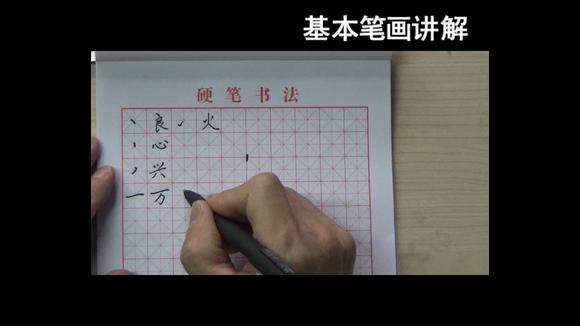 基本笔画讲解
硬笔书法
丶良㇒火
丶心
㇒兴
一万